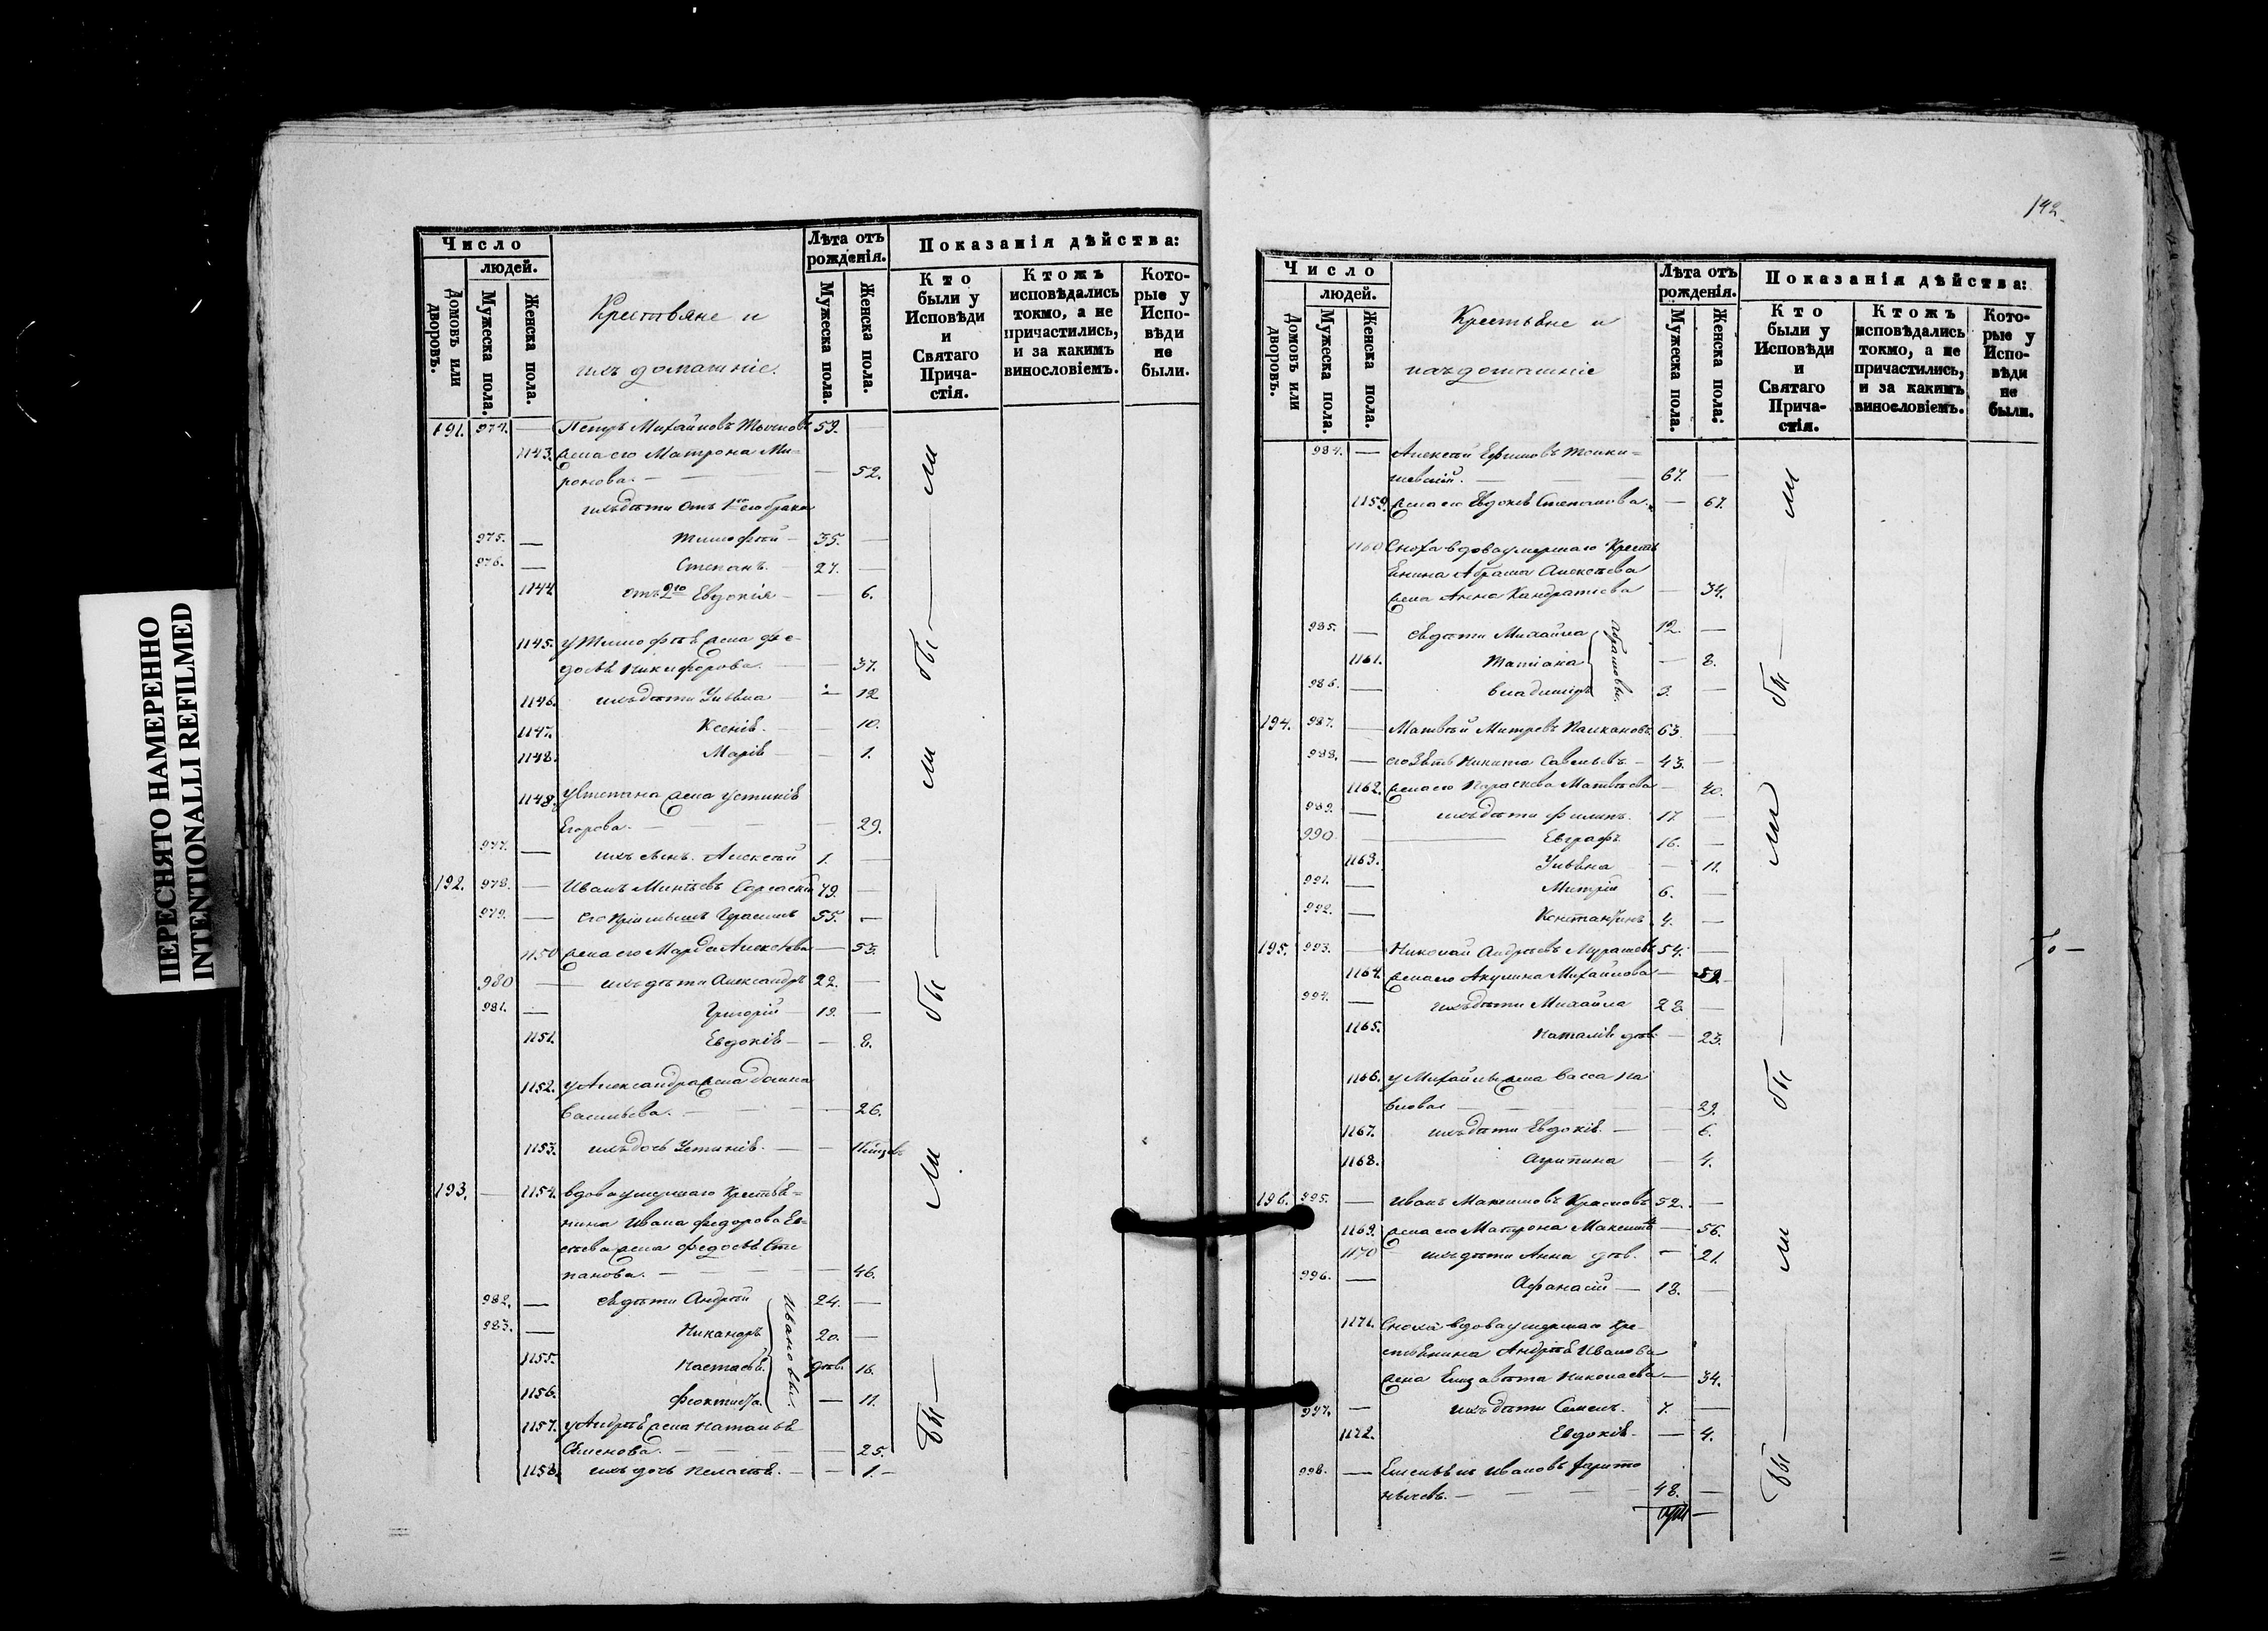 ПЕРЕСНЯТО НАМЕРЕННО
INTENTIONALLI REFILMED
Число
людей.
Домовъ или дворовъ.
Мужеска пола.
Женска пола.
Крестьяне и
ихъ домашніе.
Лѣта отъ рожденія.
Мужеска пола.
Женска пола.
Показанія дѣйства:
Кто были у Исповѣди и Святаго Причастія.
Ктожъ исповѣдались токмо, а не причастились, и за какимъ винословіемъ.
Которые у Исповѣди не были.
191. 974. — Петръ Михайловъ 59. —
1143. жена его Матрона Ми=
ронова. — — 52.
ихъ дѣти отъ 1го его брака
975. — Тимофѣй — 35. —
976. — Степанъ. 27. —
1144 отъ 2го Евдокія — — 6.
1145. у Тимофѣя жена Фе-
досья Никифорова. — — 37.
1146. ихъ дѣти Ульяна — 12
1147. Ксенія. — — 10.
1148. Марія — — 1.
1148. у Степана жена Устинія
Егорова. — — 29.
977. — ихъ сынъ. Алексѣй 1. —
192. 978. — Иванъ 79. —
979. — его Герасимъ 55. —
1150 жена его Марфа Алексѣева — 53.
980 — ихъ дѣти Александръ 22. —
981. — Григорій 19. —
1151. Евдокія — — 8.
1152. у Александра жена Домна
Васильева. — — 26.
1153. ихъ дочь Устинія. — —
193. — 1154. вдова умершаго крестья=
нина Ивана Федорова
жена Федосья Сте
панова. — — 46.
982. — ея дѣти Андрей 24. —
983. — Никандръ 20. —
1155. Настасья. дѣв. 16.
1156. Феоктиста. — 11.
Ивановы.
1157. у Андрея жена Наталья
Семенова. — — 25.
1158. ихъ дочь Пелагея. — — 1. —
бы — ли
бы — ли
бы — ли
142.
Число
людей.
Домовъ или дворовъ.
Мужеска пола.
Женска пола.
Крестьяне и
ихъ домашніе
Лѣта отъ рожденія.
Мужеска пола.
Женска пола.
Показанія дѣйства:
Кто были у Исповѣди и Святаго Причастія.
Ктожъ исповѣдались токмо, а не причастились, и за какимъ винословіемъ.
Которые у Исповѣди не были.
984. — Алексѣй Ефимовъ
67. —
1159. жена его Евдокія Степанова. — 67.
1160 Сноха вдова умершаго Кресть
янина Абрама Алексѣева
жена Анна Кандратьева — 34.
985. — ея дѣти Михайла 12. —
1161. Татіана — 8.
986. — Владиміръ 3. —
Абрамовы.
194. 987. — Матвѣй Митревъ Палкановъ 63. —
988. — его зять Никита Савельевъ — 43. —
1162. жена его Параскева Матвѣева — 40.
989. — ихъ дѣти Филипъ. 17. —
990. — Евграфъ 16. —
1163. Ульяна — 11.
991. — Митрій 6. —
992. — Константинъ 4. —
195. 993. — Николай Андреевъ Мурашевъ 54. —
1164. жена его Акулина Михайлова — 59.
994. — ихъ дѣти Михайла 28 —
1165. Наталія дѣв. — 23.
1166. у Михайлы жена Васса Па
влова — — 29.
1167. ихъ дѣти Евдокія. — 6.
1168. Агрипина — 4.
196. 995. — Иванъ Максимовъ Красновъ 52. —
1169. жена его Матрона — 56.
1170 ихъ дѣти Анна дѣв. — 21.
996. — Афанасій — 18. —
1171. Сноха вдова умершаго Кре-
стьянина Андрея Иванова
жена Елизавета Николаева — 34.
997. — ихъ дѣти Семенъ. 7. —
1172. Евдокія. — 4.
998. — Елисей Ивановъ
48. —
бы — ли
бы — ли
бы — ли